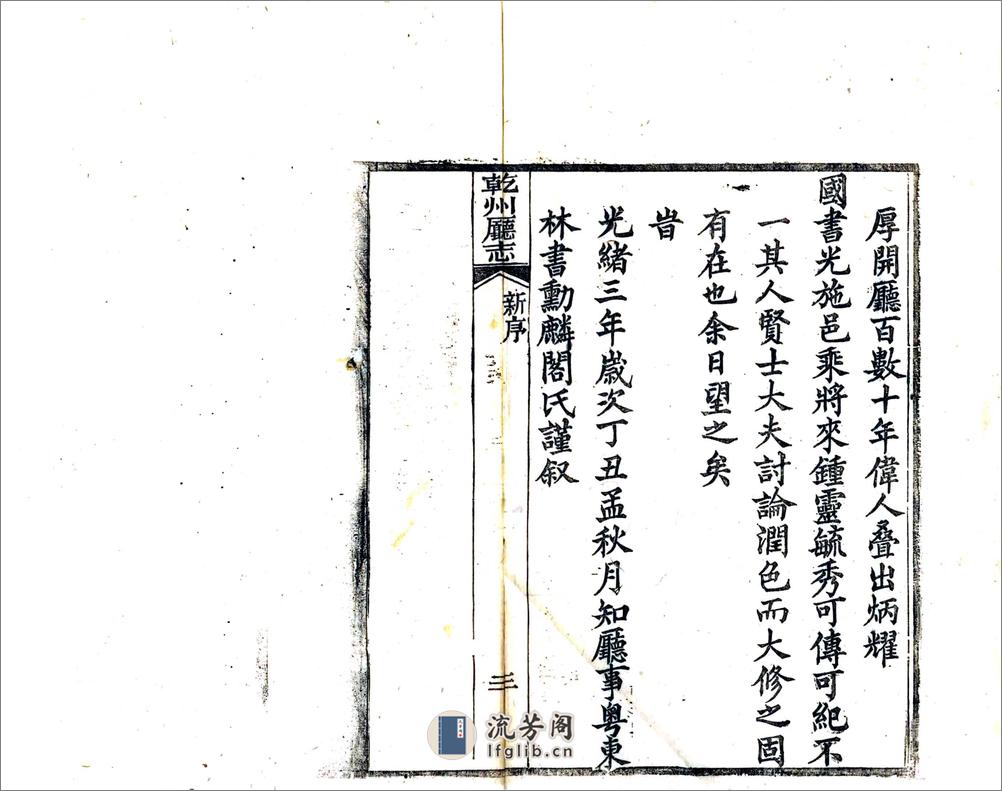 厚開廳百數十年偉人叠出炳耀
國書光施邑乘將來鍾靈毓秀可傳可紀不
一其人賢士大夫討論潤色而大修之固
有在也余日望之矣
旹
光緒三年歲次丁丑孟秋月知廳事粤東
林書勳麟閣氏謹叙
乾州廳志
新序
三
流芳阁
lfglib.cn